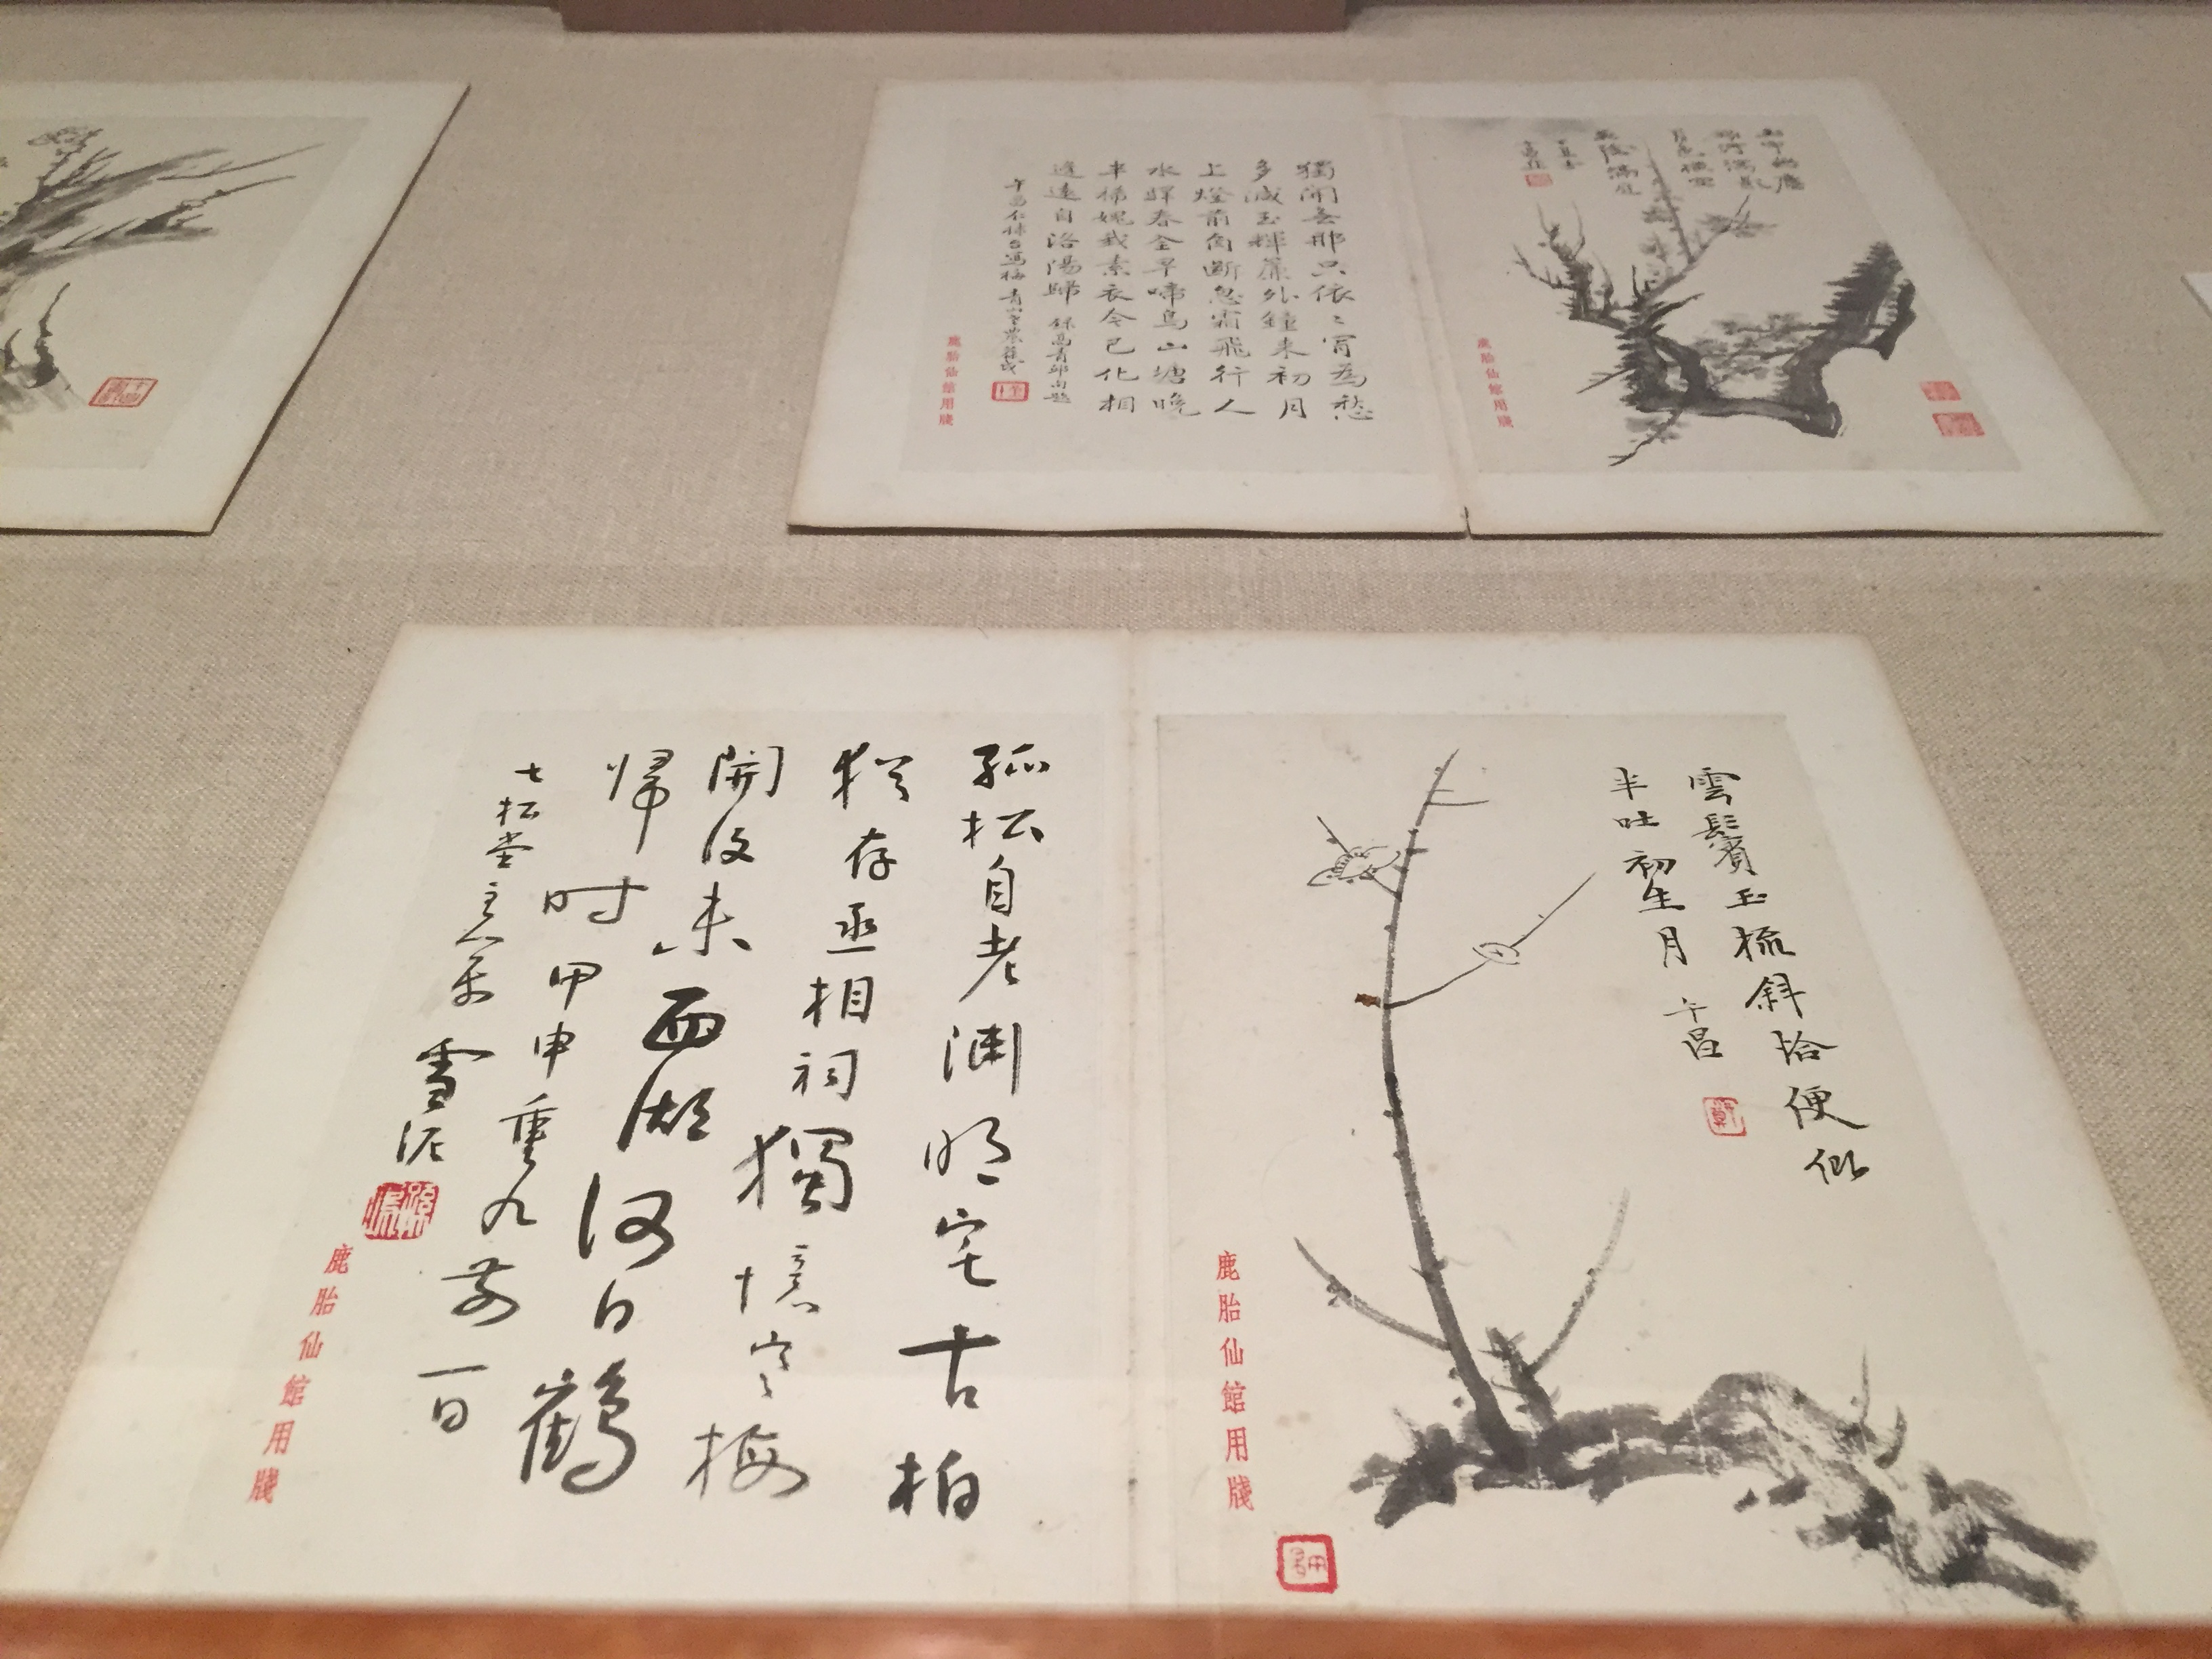 獨開無那只依〻肯為愁
多減玉輝簾外鐘來初月
上燈前角斷忽霜飛行人
水驛春全早啼鳥山塘晚
半稀愧我素衣今已化相
逢遠自洛陽歸 錄高青邱句題
鹿胎仙館用牋
鹿胎仙館用牋
雲鬢玉梳斜拾便似
半吐初生月 午昌
鹿胎仙館用牋
孤松自老渊明宅古柏
犹存丞相祠獨憶寒梅
開後未西湖何日鶴
帰时甲申重九前一日
七松堂主人属 雪泥
鹿胎仙館用牋